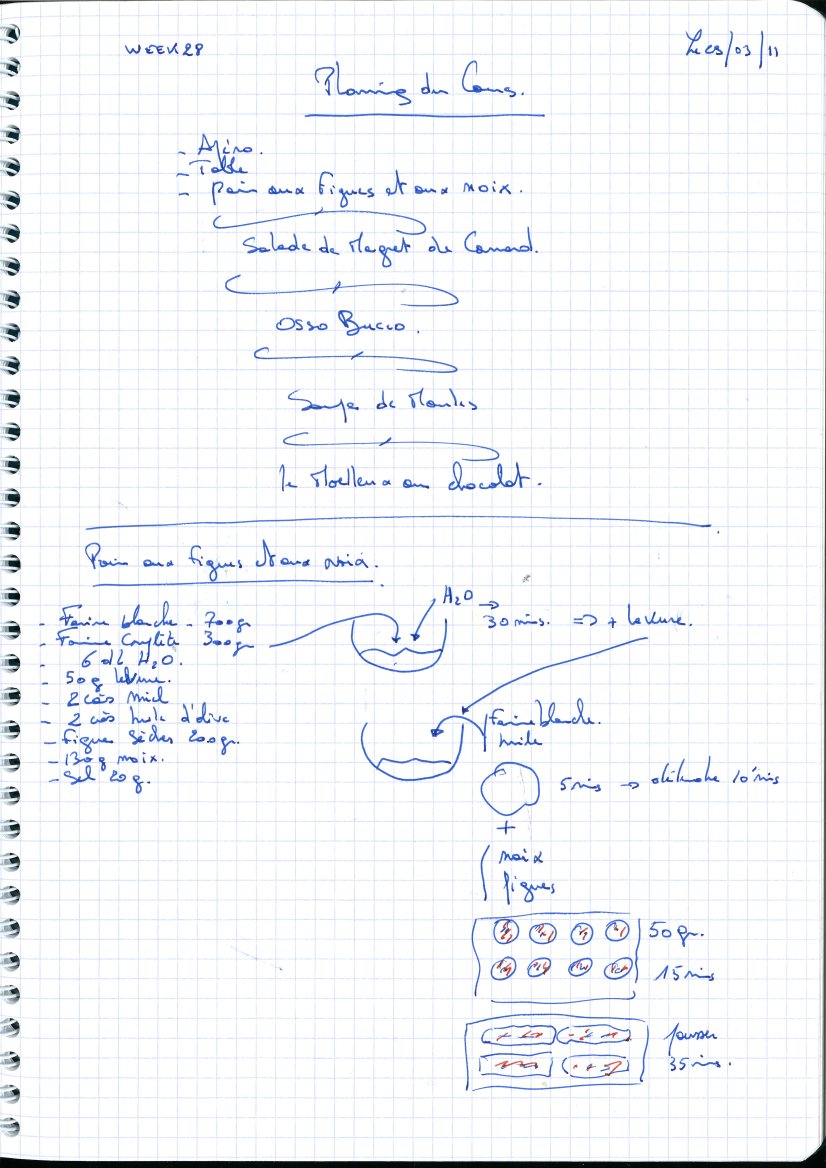 WEEK 28
Le 03/11
Planning du Cours.
- Apéro.
- Table
- pain aux figues et aux noix.
Salade de Magret de Canard.
Osso Bucco.
Soupe de Moules
le Moelleux au chocolat.
Pain aux figues et aux noix.
- Farine blanche - 700gr
- Farine Complète 300gr
- 6 dl H₂O.
- 50g levure.
- 2 càs miel
- 2 càs huile d'olive
- figues sèches 200gr.
- 130g noix.
- Sel 20g.
H₂O → 30 mins. => + levure.
farine blanche.
huile
5 mins → détendre 10 mins
+
noix
figues
50 gr.
15 mins
pousser
35 mins.